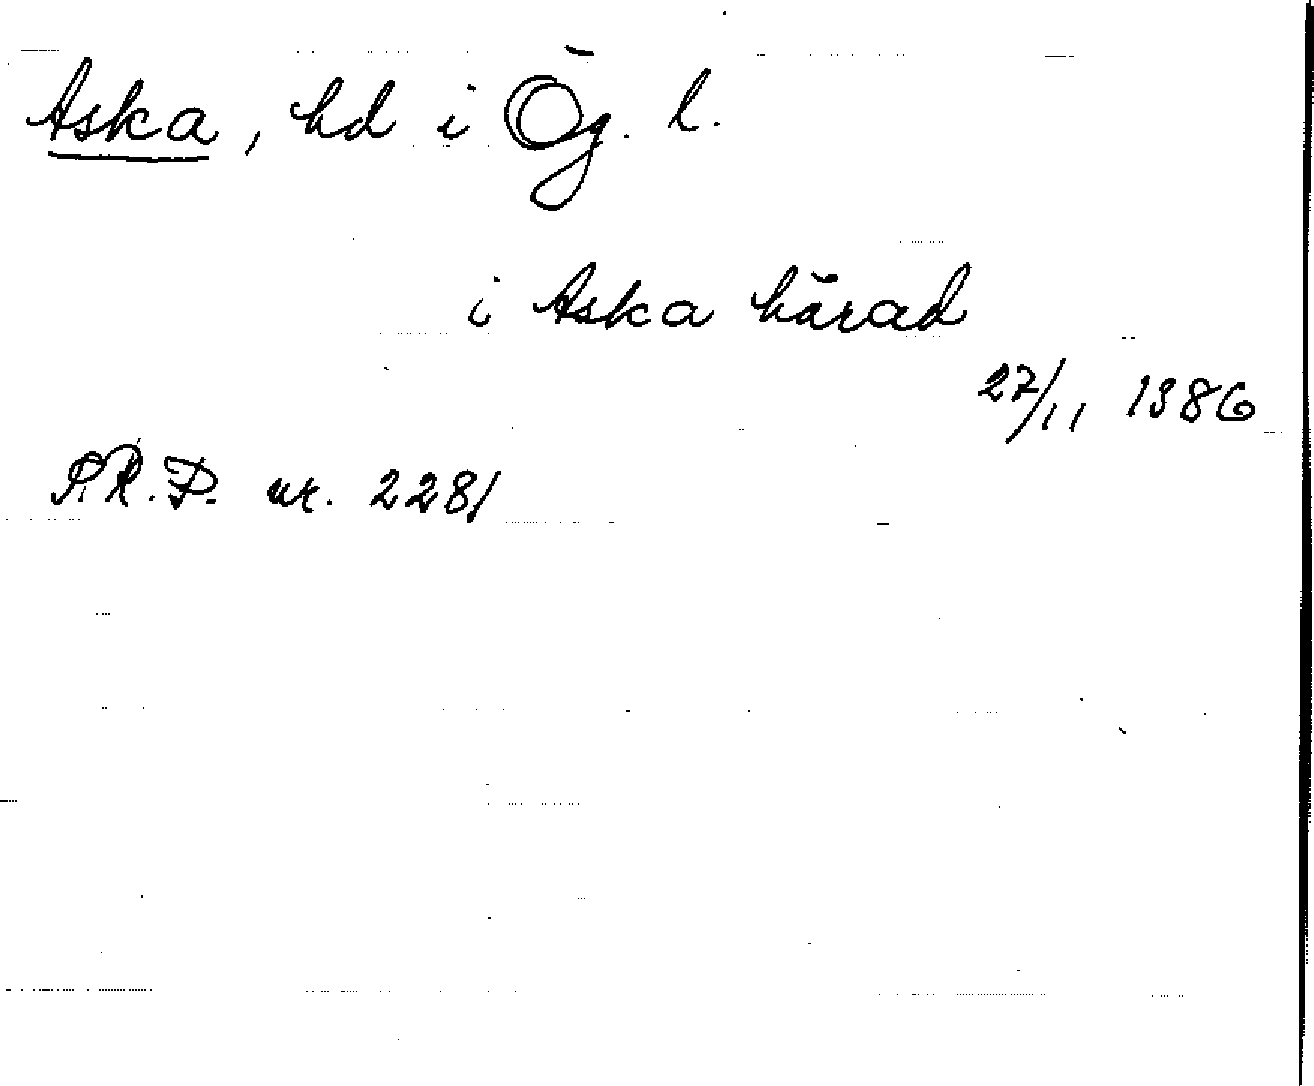 Aska, hd i Ög. l.
i Aska härad
27/11 1386
P.R.P. nr. 2281